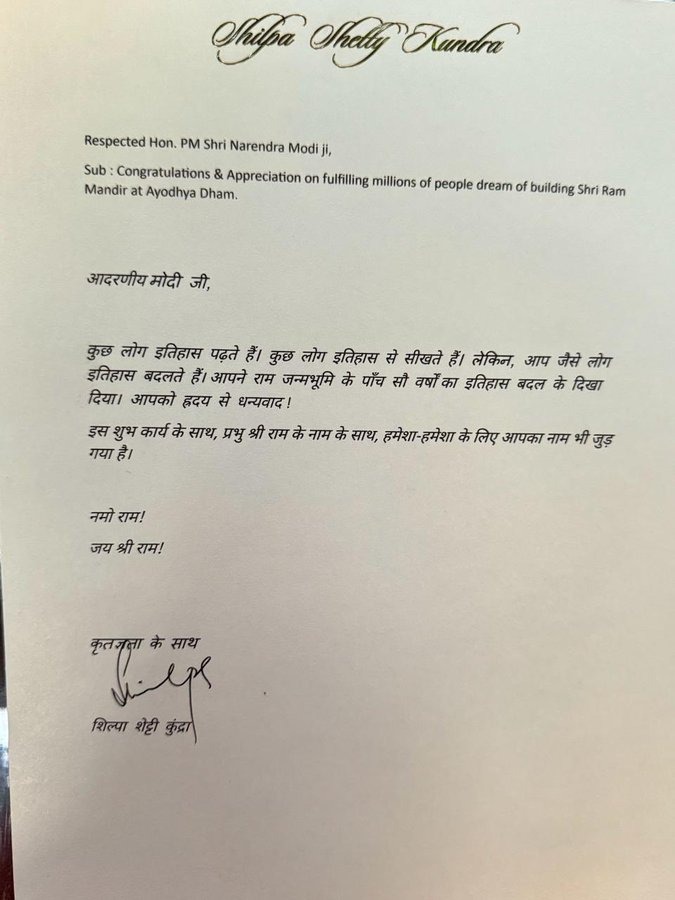 Shilpa Shetty Kundra
Respected Hon. PM Shri Narendra Modi ji,
Sub : Congratulations & Appreciation on fulfilling millions of people dream of building Shri Ram
Mandir at Ayodhya Dham.
आदरणीय मोदी जी,
कुछ लोग इतिहास पढ़ते हैं। कुछ लोग इतिहास से सीखते हैं। लेकिन, आप जैसे लोग
इतिहास बदलते हैं। आपने राम जन्मभूमि के पाँच सौ वर्षों का इतिहास बदल के दिखा
दिया। आपको ह्रदय से धन्यवाद !
इस शुभ कार्य के साथ, प्रभु श्री राम के नाम के साथ, हमेशा-हमेशा के लिए आपका नाम भी जुड़
गया है।
नमो राम!
जय श्री राम!
कृतज्ञता के साथ
शिल्पा शेट्टी कुंद्रा